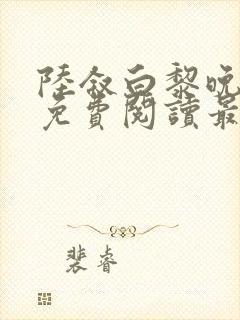 陸敘白黎晚
免費閱讀最
裴睿